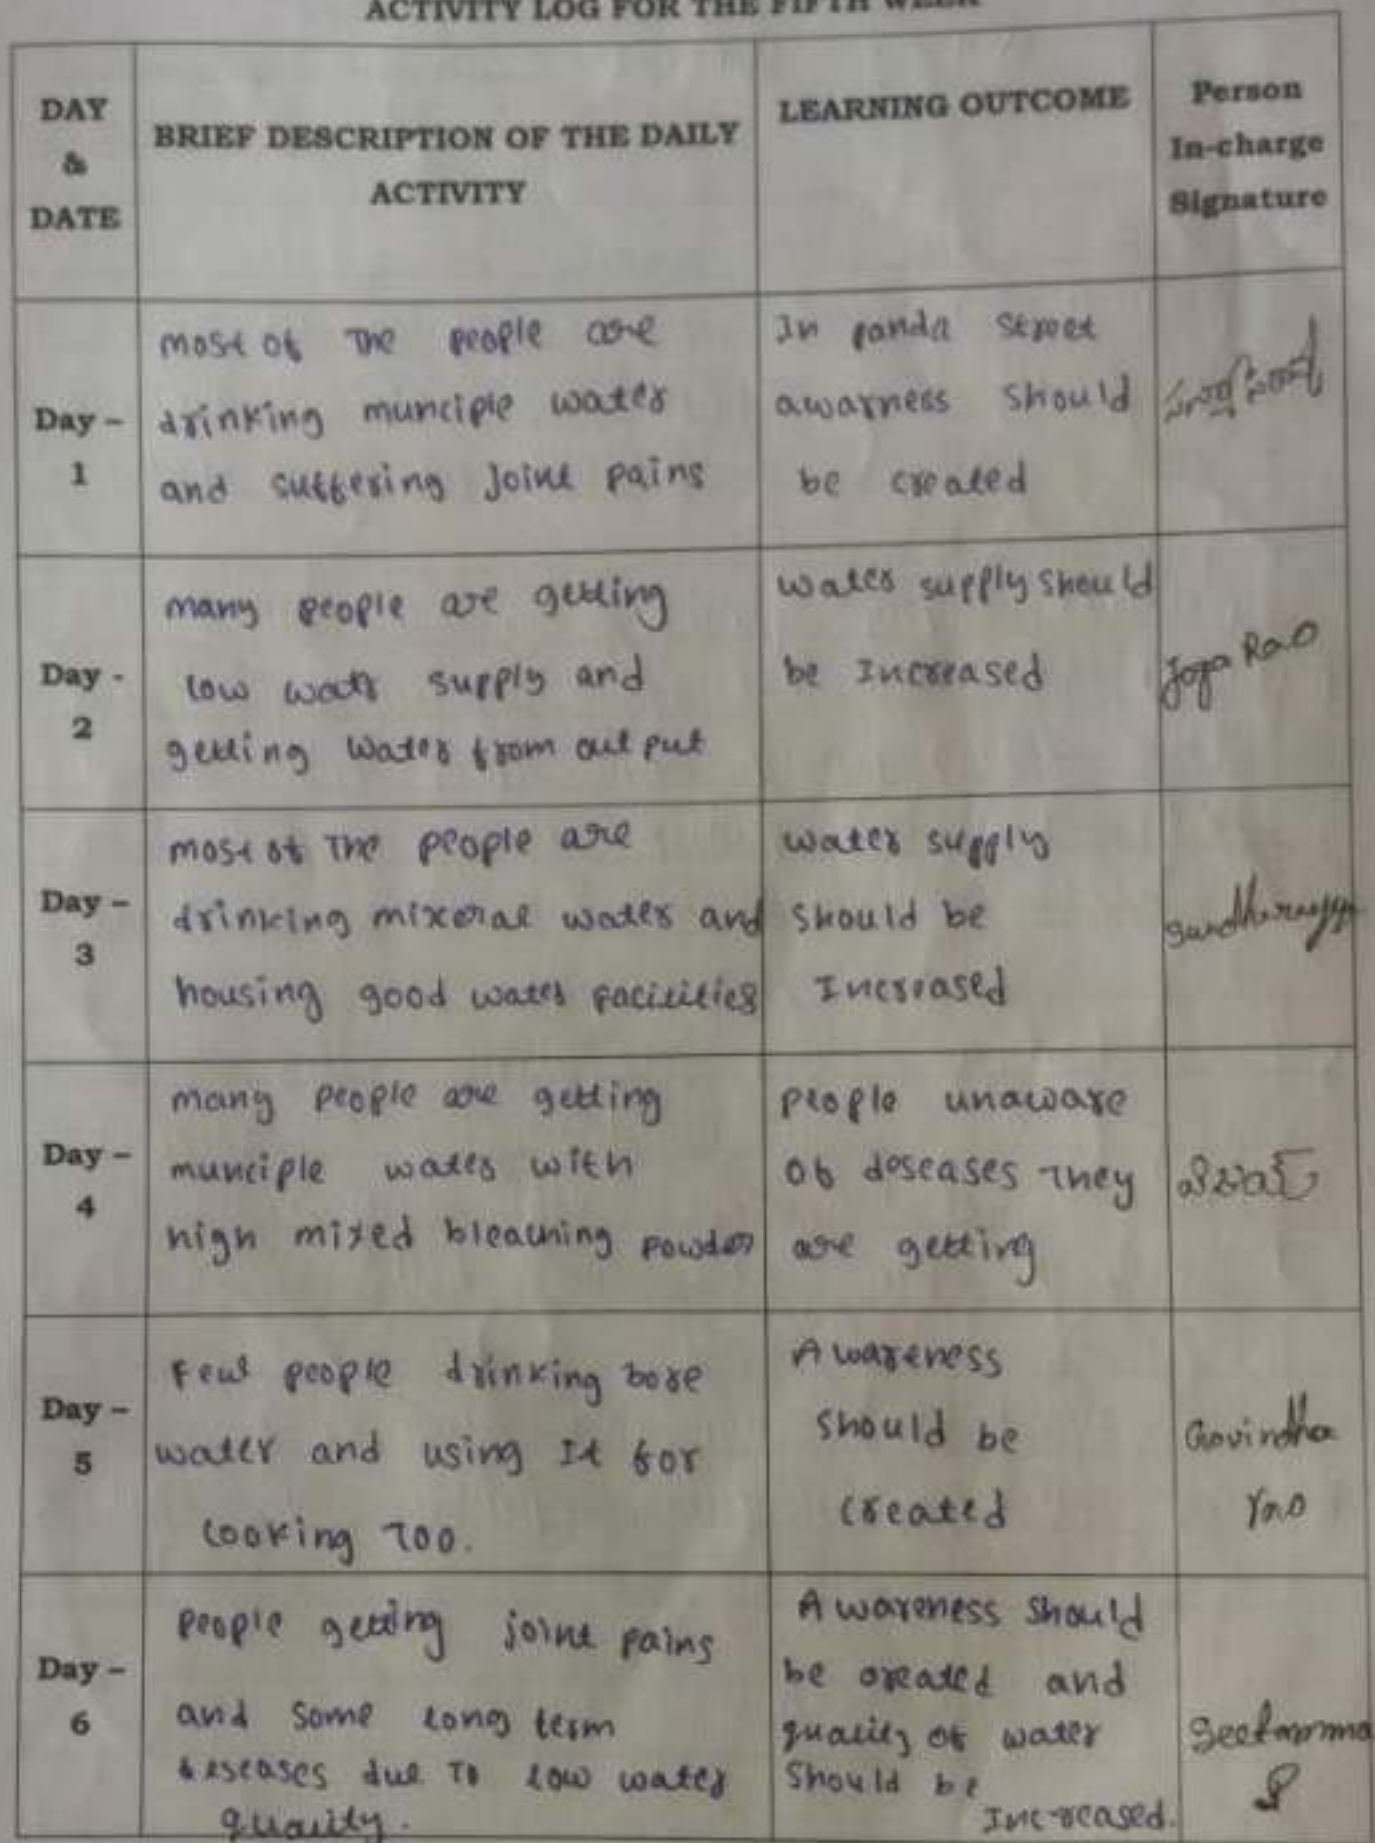 ACTIVITY LOG FOR THE FIFTH WEEK
DAY
&
DATE
BRIEF DESCRIPTION OF THE DAILY
ACTIVITY
LEARNING OUTCOME
Person
In-charge
Signature
Day –
1
most of the people are
drinking munciple water
and suffering joint pains
In panda street
awarness should
be created
Day -
2
many people are getting
low watr supply and
getting water from out put
water supply should
be Increased
Joga Rao
Day –
3
most of the people are
drinking mixeral water and
housing good water facilities
water supply
should be
Increased
Day –
4
many people are getting
munciple water with
high mixed bleaching powder
people unaware
of deseases they
are getting
Day –
5
Few people drinking bore
water and using It for
cooking Too.
Awareness
should be
created
Govindha
rao
Day –
6
people getting joint pains
and some long term
deseases due to low water
quality.
Awareness should
be created and
quality of water
should be
Increased.
Seetamma